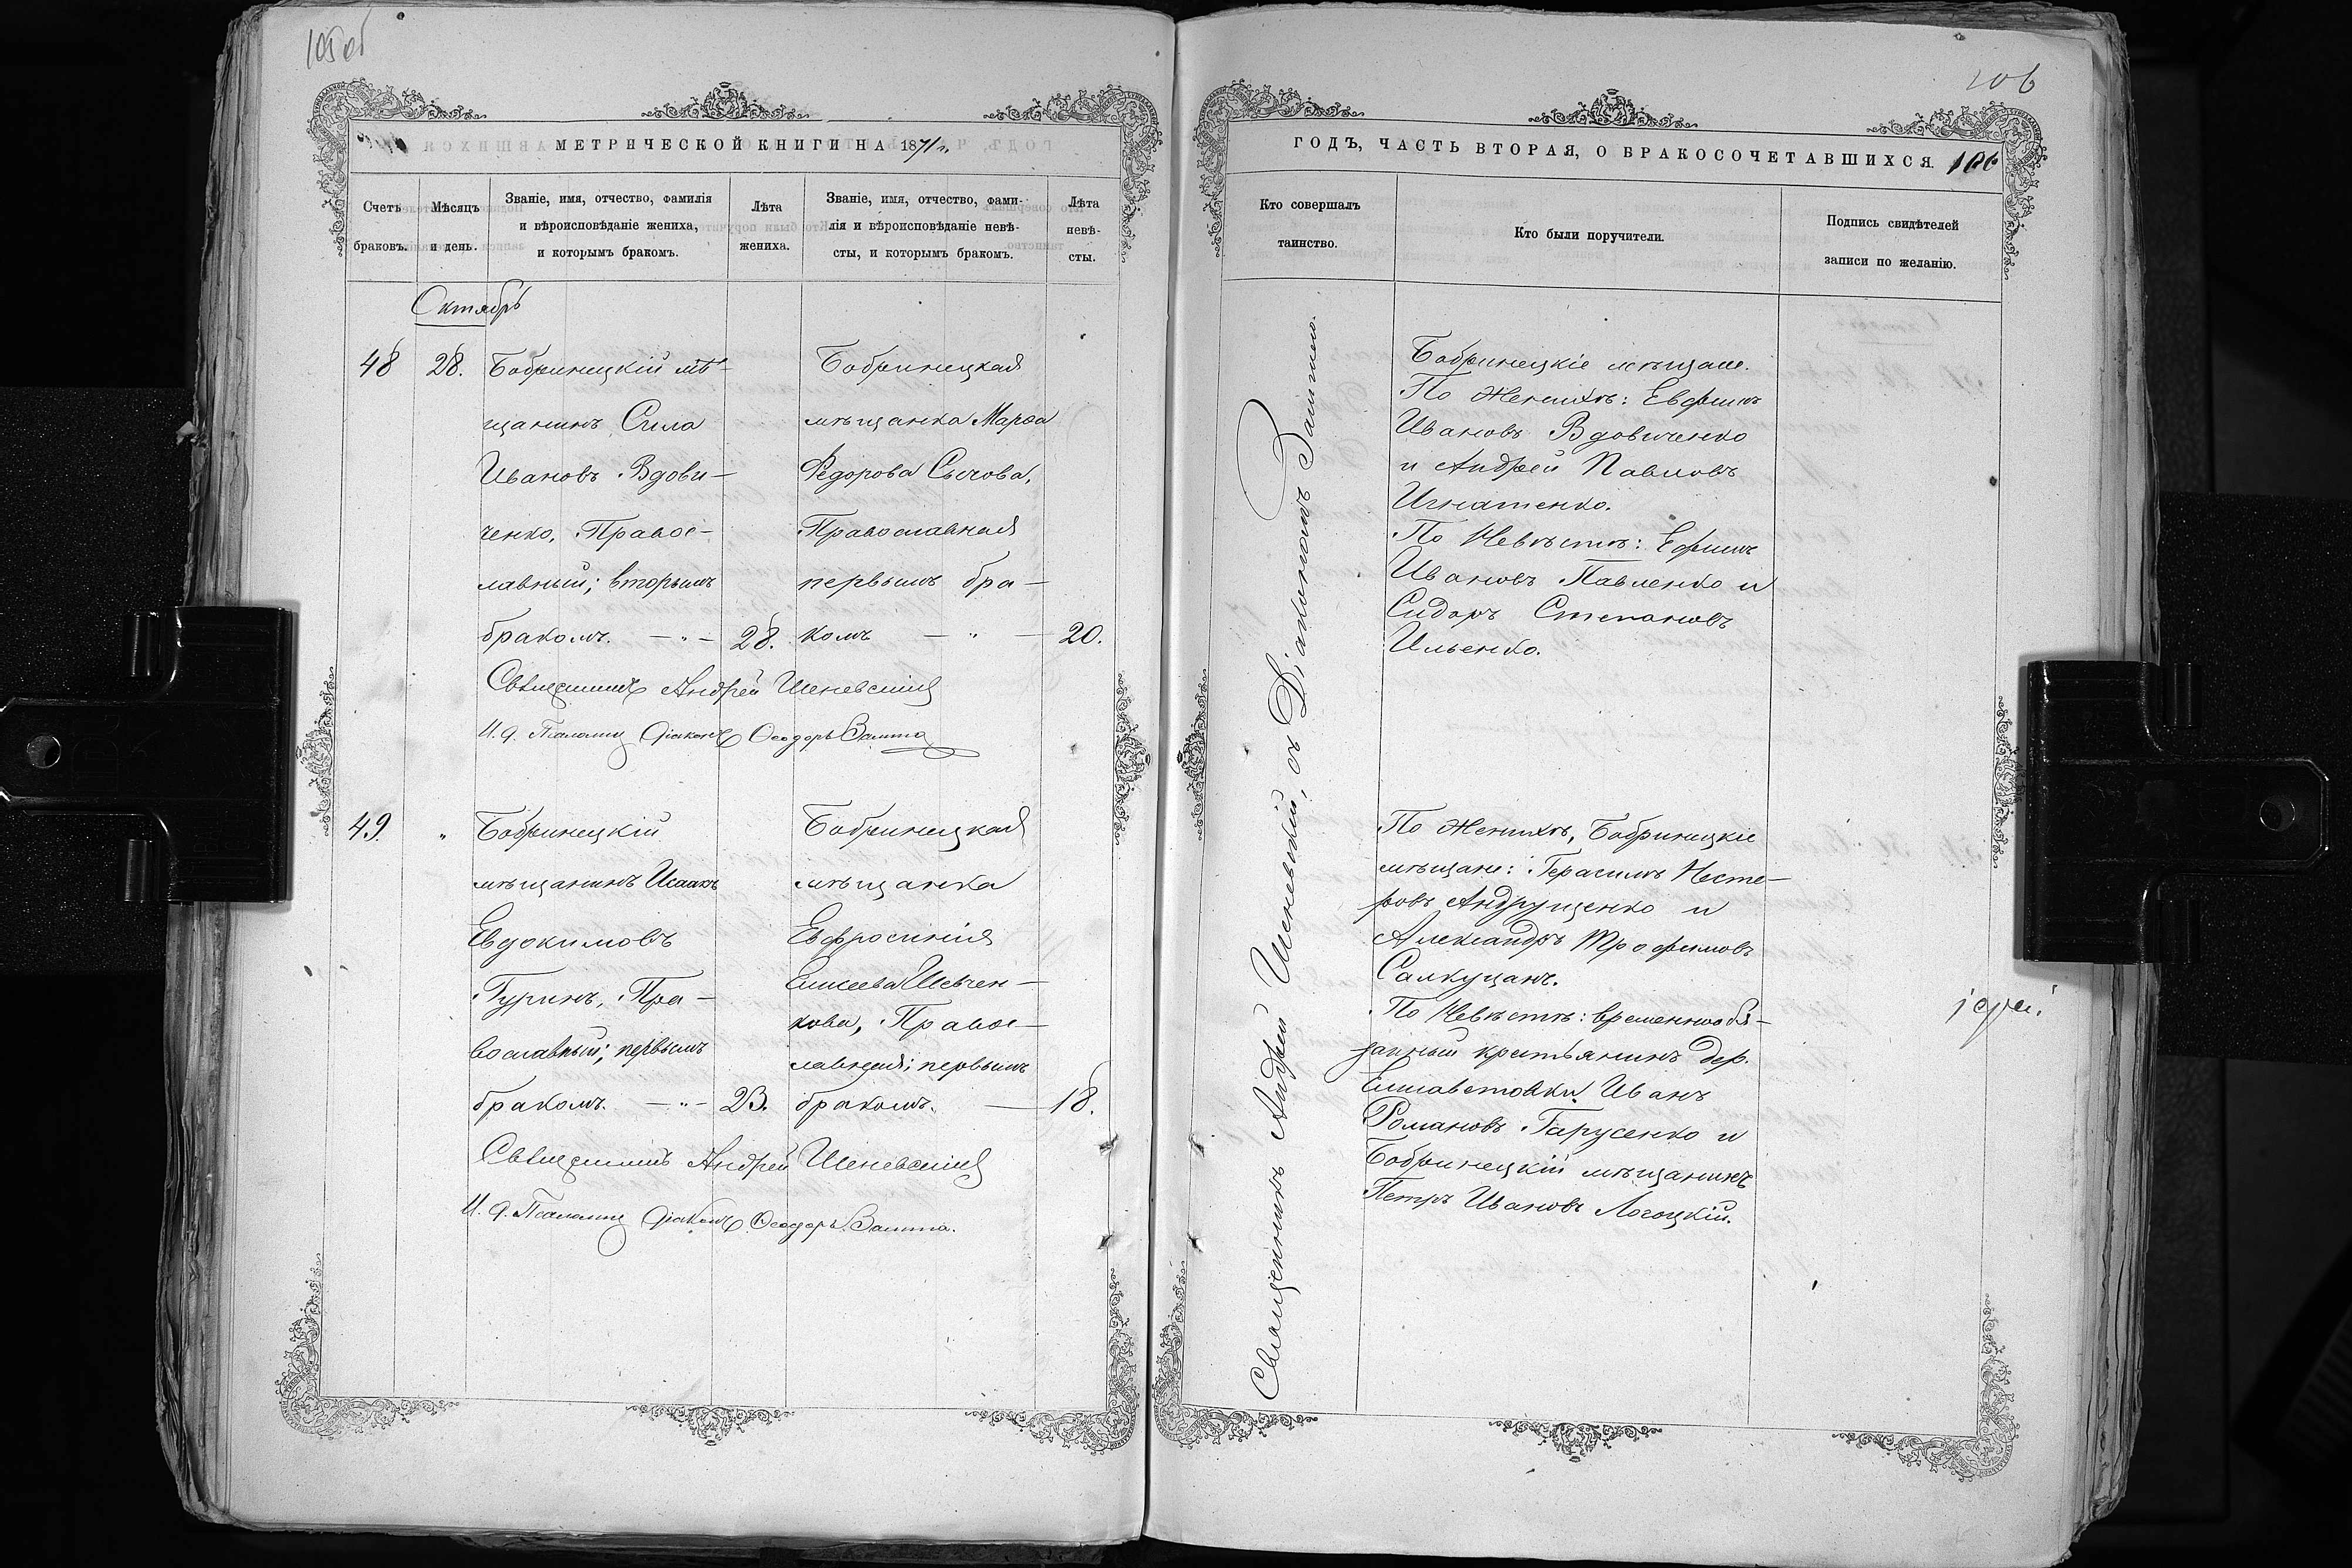 105 об
МЕТРИЧЕСКОЙ КНИГИ НА 1871 г.
Счетъ браковъ.
Мѣсяцъ и день.
Званіе, имя, отчество, фамилія
и вѣроисповѣданіе жениха,
и которымъ бракомъ.
Лѣта
жениха.
Званіе, имя, отчество, фами-
лія и вѣроисповѣданіе невѣ-
сты, и которымъ бракомъ.
Лѣта
невѣ-
сты.
Октябрь
48
28.
Бобринецкій мѣ-
щанинъ Сила
Ивановъ Вдови-
ченко, Правос-
лавный; вторымъ
бракомъ. — „ —
28.
Бобринецкая
мѣщанка Марѳа
Ѳедорова Сычова,
Православная
первымъ бра-
комъ — „ —
20.
Священникъ Андрей Шеневскій
И. д. Псаломщ Діаконъ Ѳеодоръ Замша
49.
„
Бобринецкій
мѣщанинъ Исаакъ
Евдокимовъ
Гуринъ, Пра-
вославный; первымъ
бракомъ. — „ —
23.
Бобринецкая
мѣщанка
Евфросинія
Елисеева Шевчен-
кова, Правос-
лавная; первымъ
бракомъ. —
18.
Священникъ Андрей Шеневскій
И. д. Псаломщ Діаконъ Ѳеодоръ Замша.
106
ГОДЪ, ЧАСТЬ ВТОРАЯ, О БРАКОСОЧЕТАВШИХСЯ. 106
Кто совершалъ
таинство.
Кто были поручители.
Подпись свидѣтелей
записи по желанію.
Священникъ Андрей Шеневскій, съ Діакономъ Замшею.
Бобринецкіе мѣщане.
По Женихѣ: Евфимъ
Ивановъ Вдовиченко
и Андрей Павловъ
Игнатенко.
По Невѣстѣ: Ефимъ
Ивановъ Павленко и
Сидоръ Степановъ
Ильенко.
По Женихѣ, Бобринецкіе
мѣщане: Герасимъ Несте-
ровъ Андрущенко и
Александръ Трофимовъ
Салкуцанъ.
По Невѣстѣ: временнообя-
занный крестьянинъ дер.
Елисаветовки Иванъ
Романовъ Гарусенко и
Бобринецкій мѣщанинъ
Петръ Ивановъ Логоцкій.
іерей